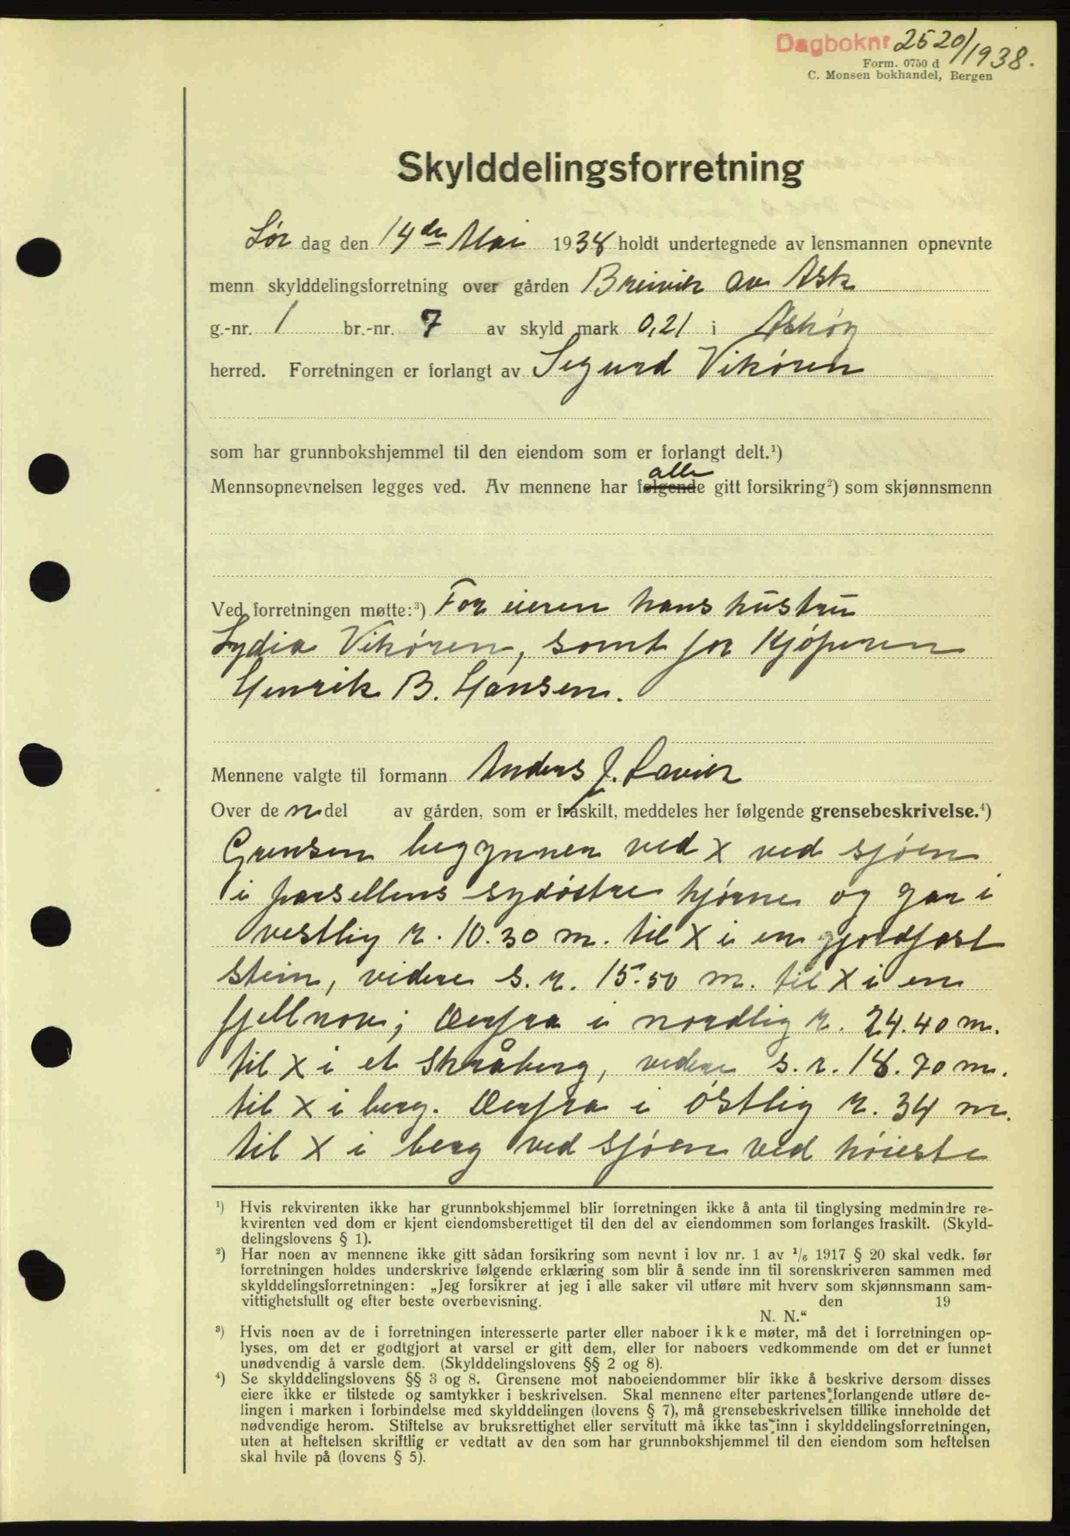 Dagboknr 2520/1938.
Form. 0750 d
C. Monsen bokhandel, Bergen
Skylddelingsforretning
Lør dag den 14de Mai 1938 holdt undertegnede av lensmannen opnevnte
menn skylddelingsforretning over gården Breivik av Ask
g.-nr. 1 br.-nr. 7 av skyld mark 0,21 i Askøy
herred. Forretningen er forlangt av Sigurd Vikøren
som har grunnbokshjemmel til den eiendom som er forlangt delt.¹)
alle
Mennsopnevnelsen legges ved. Av mennene har følgende gitt forsikring²) som skjønnsmenn
Ved forretningen møtte:³) For eieren hans hustru
Lydia Vikøren, samt for kjøperen
Henrik B. Hansen.
Mennene valgte til formann Anders J. Ravik
Over de n del av gården, som er fraskilt, meddeles her følgende grensebeskrivelse.⁴)
Grensen begynner ved X ved sjøen
i parsellens sydøstre hjørne og går i
vestlig r. 10.30 m. til X i en jordfast
stein, videre s. r. 15.50 m. til X i en
fjellnov; Derfra i nordlig r. 24.40 m.
til X i et skråberg, videre s. r. 18.70 m.
til X i berg. Derfra i østlig r. 34 m.
til X i berg ved sjøen ved høieste
¹) Hvis rekvirenten ikke har grunnbokshjemmel blir forretningen ikke å anta til tinglysing medmindre re-
kvirenten ved dom er kjent eiendomsberettiget til den del av eiendommen som forlanges fraskilt. (Skyld-
delingslovens § 1).
²) Har noen av mennene ikke gitt sådan forsikring som nevnt i lov nr. 1 av ¹/₆ 1917 § 20 skal vedk. før
forretningen holdes underskrive følgende erklæring som blir å sende inn til sorenskriveren sammen med
skylddelingsforretningen: „Jeg forsikrer at jeg i alle saker vil utføre mit hverv som skjønnsmann sam-
vittighetsfullt og efter beste overbevisning. den 19
N. N.“
³) Hvis noen av de i forretningen interesserte parter eller naboer ikke møter, må det i forretningen op-
lyses, om det er godtgjort at varsel er gitt dem, eller for naboers vedkommende om det er funnet
unødvendig å varsle dem. (Skylddelingslovens §§ 2 og 8).
⁴) Se skylddelingslovens §§ 3 og 8. Grensene mot naboeiendommer blir ikke å beskrive dersom disses
eiere ikke er tilstede og samtykker i beskrivelsen. Skal mennene efter partenes forlangende utføre de-
lingen i marken i forbindelse med skylddelingen (lovens § 7), må grensebeskrivelsen tillike inneholde det
nødvendige herom. Stiftelse av bruksrettighet eller servitutt må ikke tas inn i skylddelingsforretningen,
uten at heftelsen skriftlig er vedtatt av den som har grunnbokshjemmel til den eiendom som heftelsen
skal hvile på (lovens § 5).